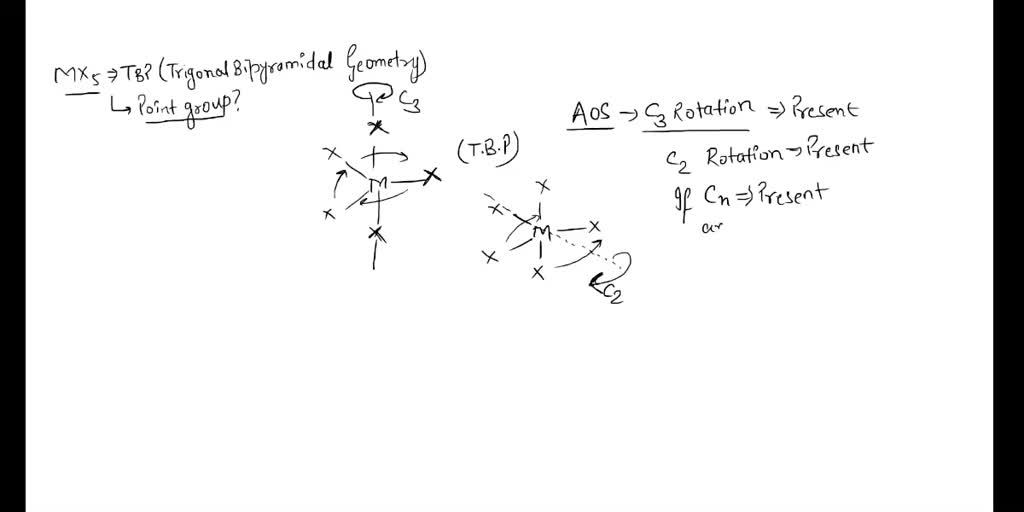 MX5 ⇒ TBP (Trigonal Bipyramidal Geometry)
↳ Point group?
C3
X
X
M
X
X
X
(T.B.P)
X
X
M
X
X
X
C2
AOS → C3 Rotation ⇒ Present
C2 Rotation → Present
If Cn ⇒ Present